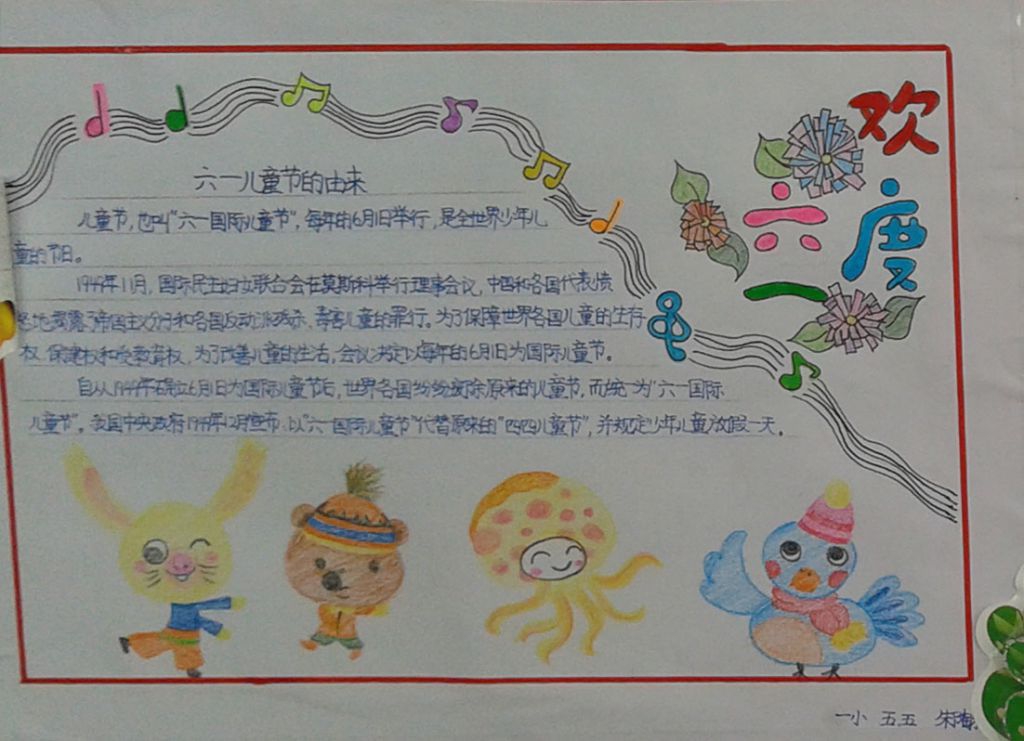 欢度
六一
六一儿童节的由来
儿童节，也叫"六一国际儿童节"，每年的6月1日举行，是全世界少年儿
童的节日。
1949年11月，国际民主妇女联合会在莫斯科举行理事会议，中国和各国代表愤
怒地揭露了帝国主义分子和各国反动派残杀、毒害儿童的罪行。为了保障世界各国儿童的生存
权、保健权和受教育权，为了改善儿童的生活，会议决定以每年的6月1日为国际儿童节。
自从1949年确立6月1日为国际儿童节后，世界各国纷纷废除原来的儿童节，而统一为"六一国际
儿童节"。我国中央政府1949年12月宣布，以"六一国际儿童节"代替原来的"四四儿童节"，并规定少年儿童放假一天。
一小 五.五 朱